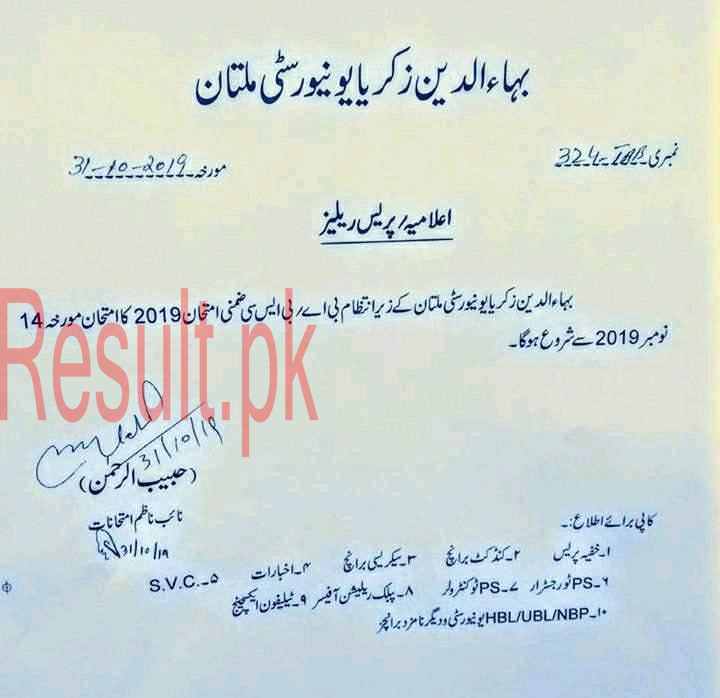 بہاء الدین زکریا یونیورسٹی ملتان
نمبری 324
مورخہ 31-10-2019
اعلامیہ/پریس ریلیز
بہاء الدین زکریا یونیورسٹی ملتان کے زیر انتظام بی اے/بی ایس سی ضمنی امتحان 2019 کا امتحان مورخہ 14
نومبر 2019 سے شروع ہوگا۔
Result.pk
31/10/19
(حبیب الرحمن)
نائب ناظم امتحانات
31/10/19
کاپی برائے اطلاع:۔
۱۔خفیہ پریس ۲۔کنڈکٹ برانچ ۳۔سیکریسی برانچ ۴۔اخبارات ۵۔S.V.C
۶۔PS ٹو رجسٹرار ۷۔PS ٹو کنٹرولر ۸۔پبلک ریلیشن آفیسر ۹۔ٹیلیفون ایکسچینج
۱۰۔HBL/UBL/NBP یونیورسٹی و دیگر نامزد برانچز